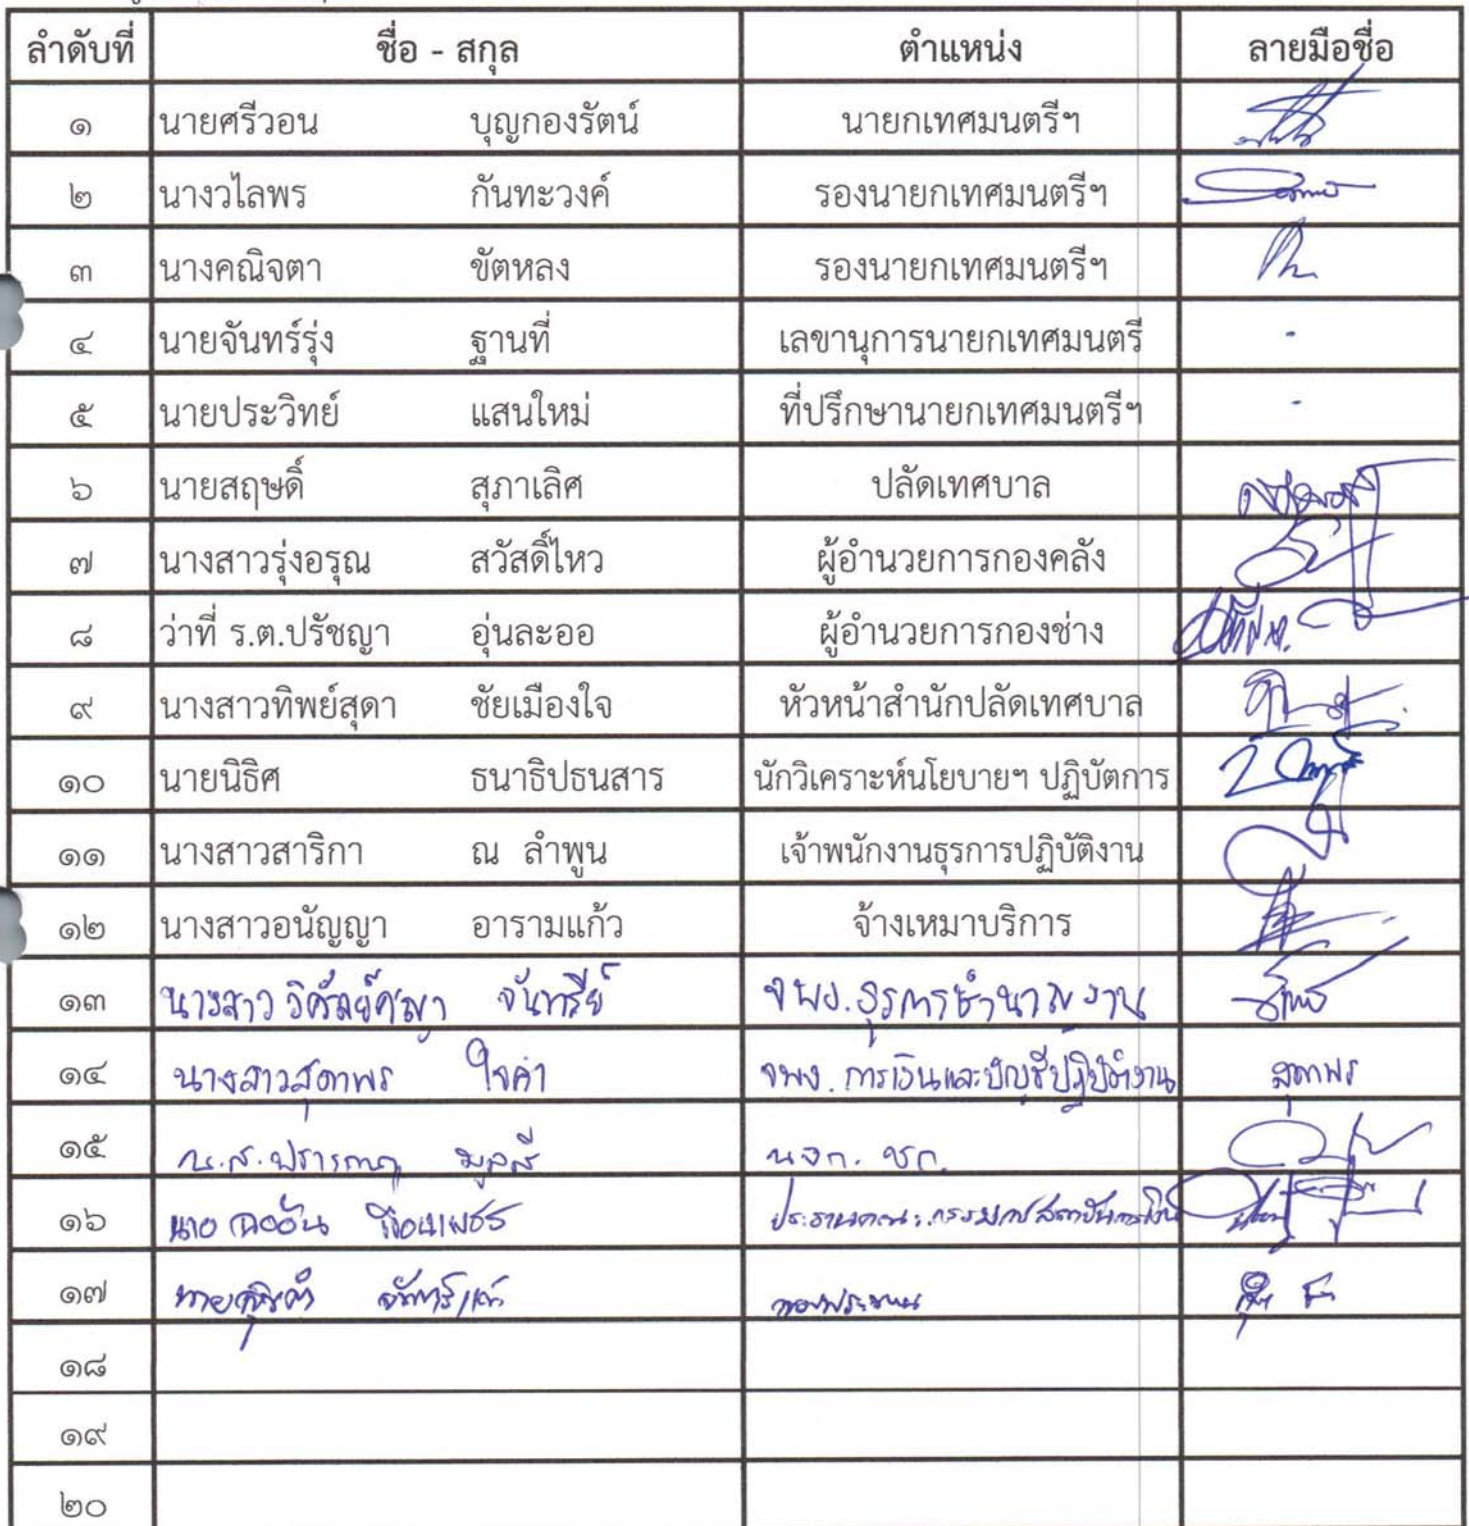 ลำดับที่ ชื่อ - สกุล ตำแหน่ง ลายมือชื่อ
๑ นายศรีวอน บุญกองรัตน์ นายกเทศมนตรีฯ
๒ นางวไลพร กันทะวงค์ รองนายกเทศมนตรีฯ
๓ นางคณิจตา ขัตหลง รองนายกเทศมนตรีฯ
๔ นายจันทร์รุ่ง ฐานที่ เลขานุการนายกเทศมนตรี -
๕ นายประวิทย์ แสนใหม่ ที่ปรึกษานายกเทศมนตรีฯ -
๖ นายสฤษดิ์ สุภาเลิศ ปลัดเทศบาล
๗ นางสาวรุ่งอรุณ สวัสดิ์ไหว ผู้อำนวยการกองคลัง
๘ ว่าที่ ร.ต.ปรัชญา อุ่นละออ ผู้อำนวยการกองช่าง
๙ นางสาวทิพย์สุดา ชัยเมืองใจ หัวหน้าสำนักปลัดเทศบาล
๑๐ นายนิธิศ ธนาธิปธนสาร นักวิเคราะห์นโยบายฯ ปฏิบัตการ
๑๑ นางสาวสาริกา ณ ลำพูน เจ้าพนักงานธุรการปฏิบัติงาน
๑๒ นางสาวอนัญญา อารามแก้ว จ้างเหมาบริการ
๑๓ นางสาว จันทรีย์ จพง.ธุรการชำนาญงาน
๑๔ นางสาวสุดาพร ใจคำ จพง. การเงินและบัญชีปฏิบัติงาน สุดาพร
๑๕ น.ส. มูลสี นจก. ชก.
๑๖ นาย ประธานคณะกรรมการสถาบันการเงิน
๑๗ นาย รองประธาน
๑๘
๑๙
๒๐